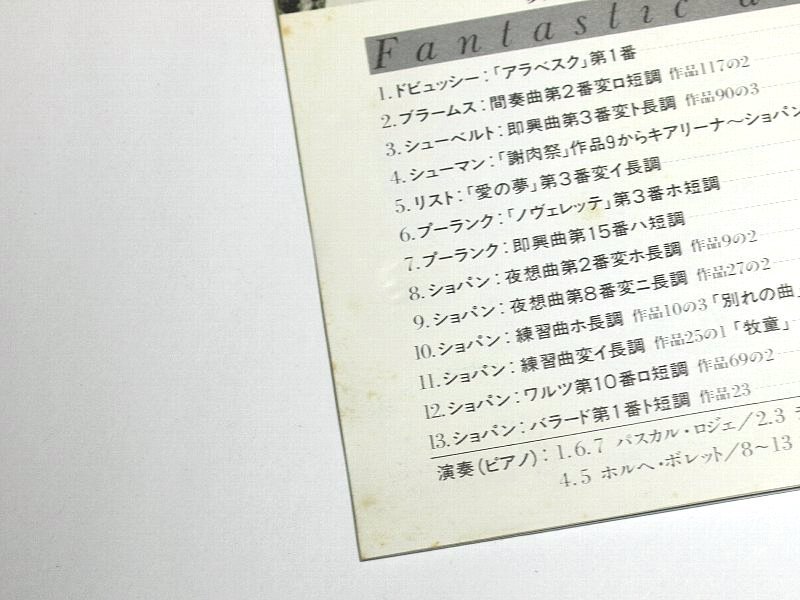 Fantastic
1.ドビュッシー：「アラベスク」第1番
2.ブラームス：間奏曲第2番変ロ短調 作品117の2
3.シューベルト：即興曲第3番変ト長調 作品90の3
4.シューマン：「謝肉祭」作品9からキアリーナ～ショパン
5.リスト：「愛の夢」第3番変イ長調
6.プーランク：「ノヴェレッテ」第3番ホ短調
7.プーランク：即興曲第15番ハ短調
8.ショパン：夜想曲第2番変ホ長調 作品9の2
9.ショパン：夜想曲第8番変ニ長調 作品27の2
10.ショパン：練習曲ホ長調 作品10の3「別れの曲」
11.ショパン：練習曲変イ長調 作品25の1「牧童」
12.ショパン：ワルツ第10番ロ短調 作品69の2
13.ショパン：バラード第1番ト短調 作品23
演奏（ピアノ）：1.6.7 パスカル・ロジェ／2.3
4.5 ホルヘ・ボレット／8～13